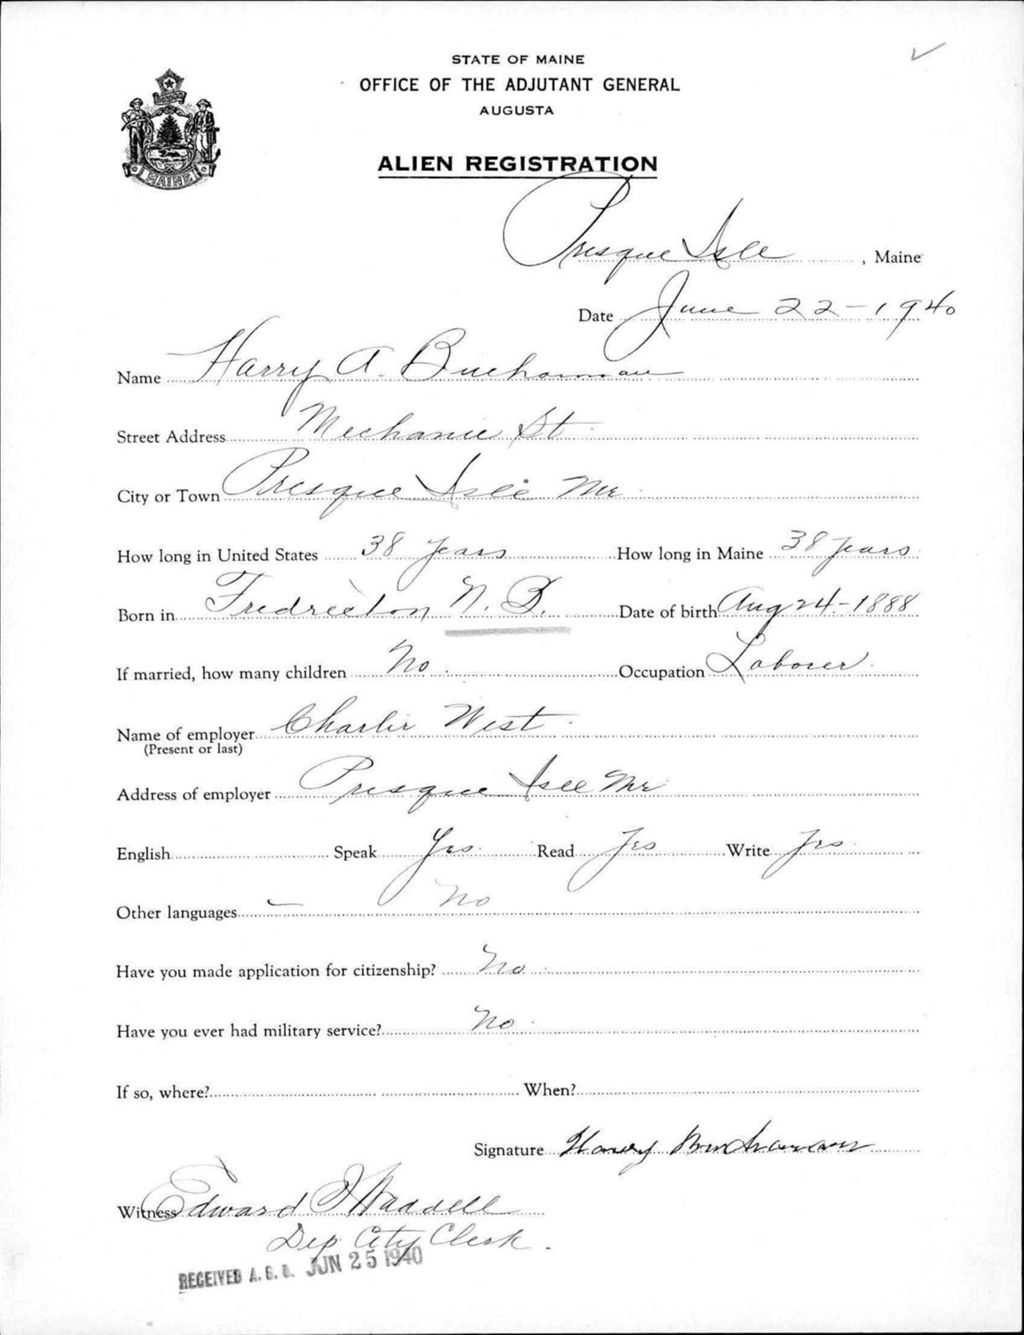 STATE OF MAINE
OFFICE OF THE ADJUTANT GENERAL
AUGUSTA
ALIEN REGISTRATION
MAINE
Presque Isle, Maine
Date June 22-1940
Name Harry A. Buchanan
Street Address Mechanic St
City or Town Presque Isle Me
How long in United States 38 years How long in Maine 38 years
Born in Fredricton N. B. Date of birth Aug 24-1888
If married, how many children No Occupation Laborer
Name of employer Charlie West
(Present or last)
Address of employer Presque Isle Me
English Speak Yes Read Yes Write Yes
Other languages - No
Have you made application for citizenship? No
Have you ever had military service? No
If so, where? When?
Signature Harry Buchanan
Witness Edward J Waddell
Dep City Clerk.
RECEIVED A. G. O. JUN 25 1940